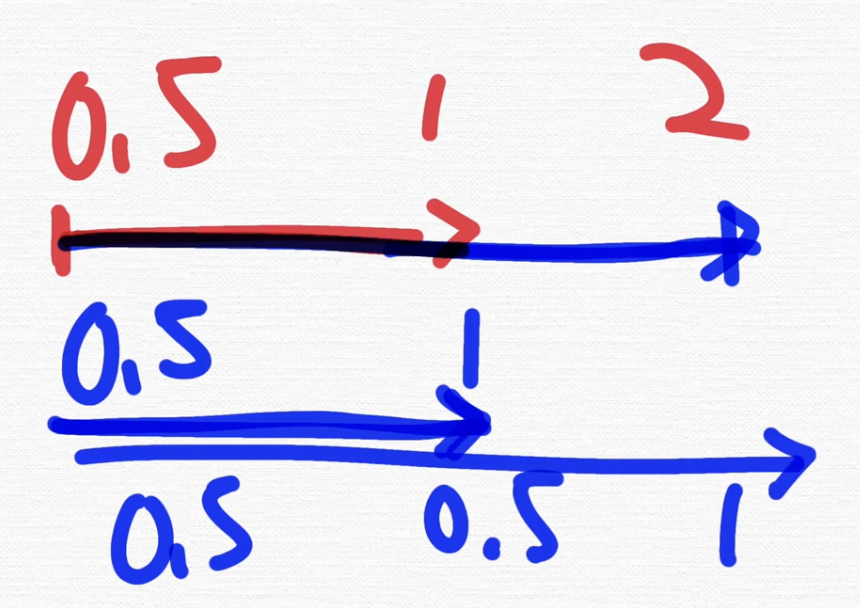 0,5 1 2
0,5 1
0,5 0.5 1